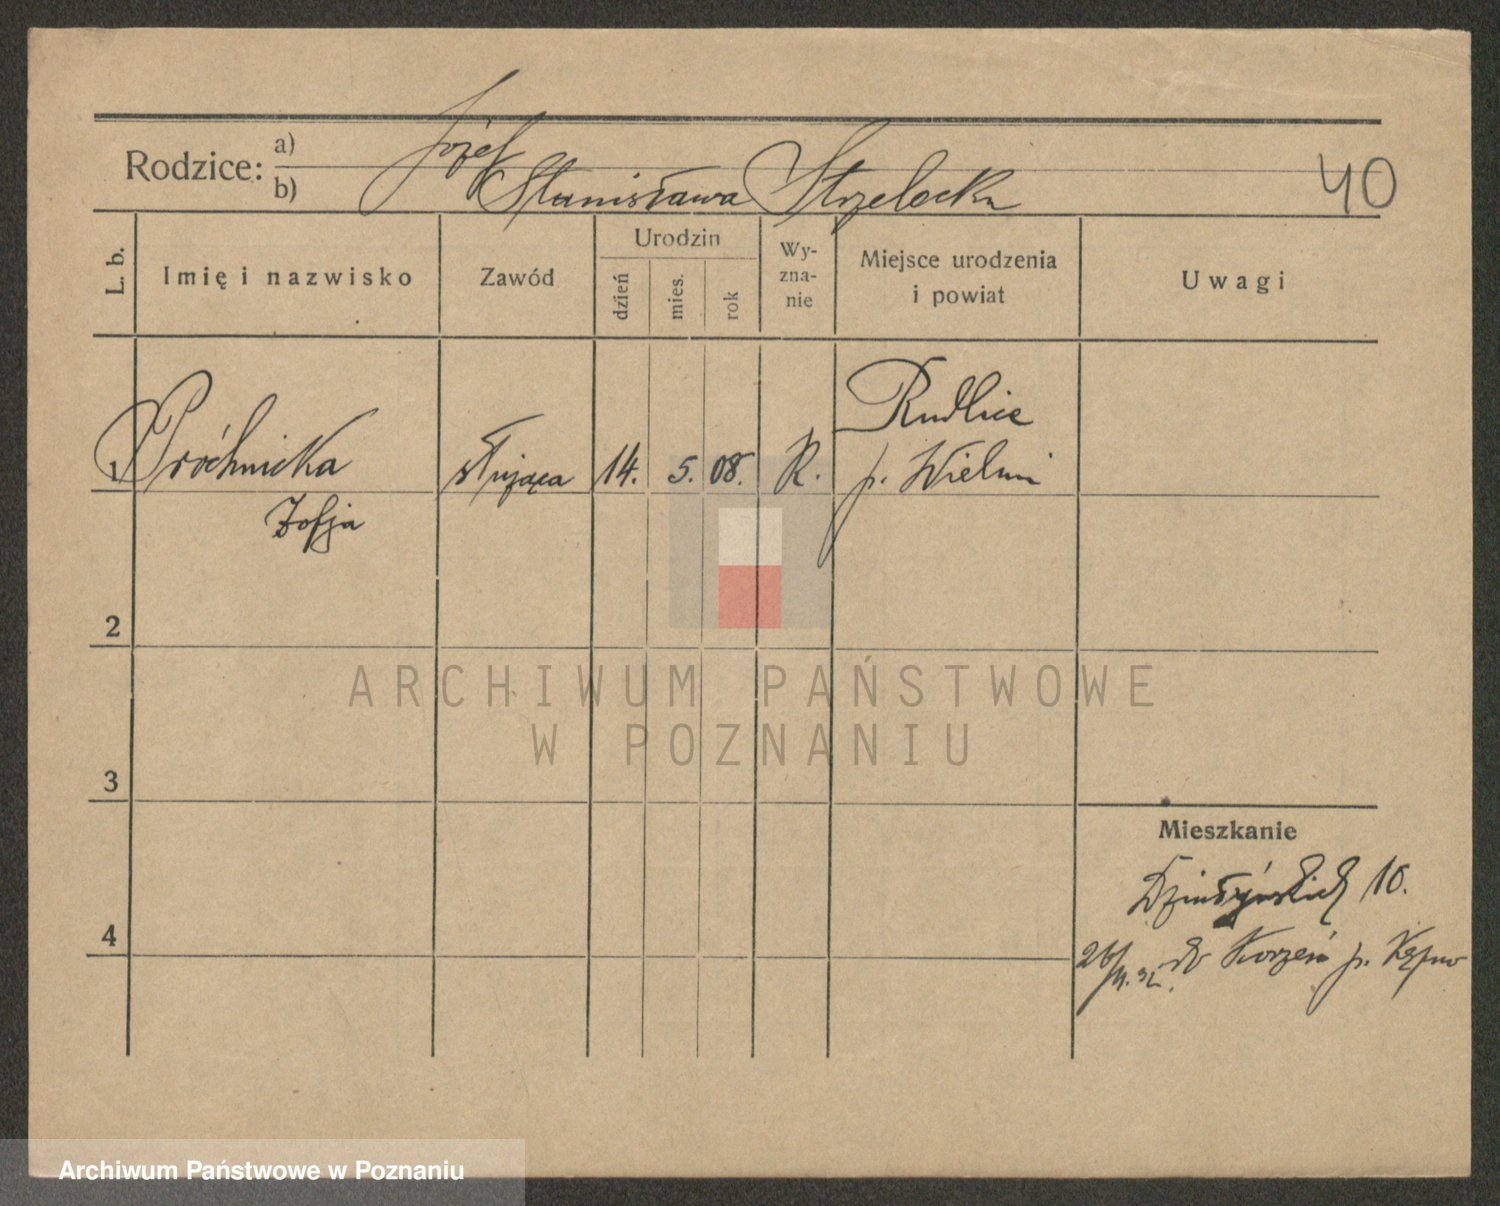 Rodzice: a) Józef
b) Stanisława Strzelecka
40
L. b.
Imię i nazwisko
Zawód
Urodzin
dzień
mies.
rok
Wy-
zna-
nie
Miejsce urodzenia
i powiat
Uwagi
1 Próchnicka służąca 14. 5. 08. R. Rudlice
p. Wieluń
Zofja
2
3
4
Mieszkanie
Działyńskich 10.
do Korzeń p. Kępno
ARCHIWUM PAŃSTWOWE
W POZNANIU
Archiwum Państwowe w Poznaniu